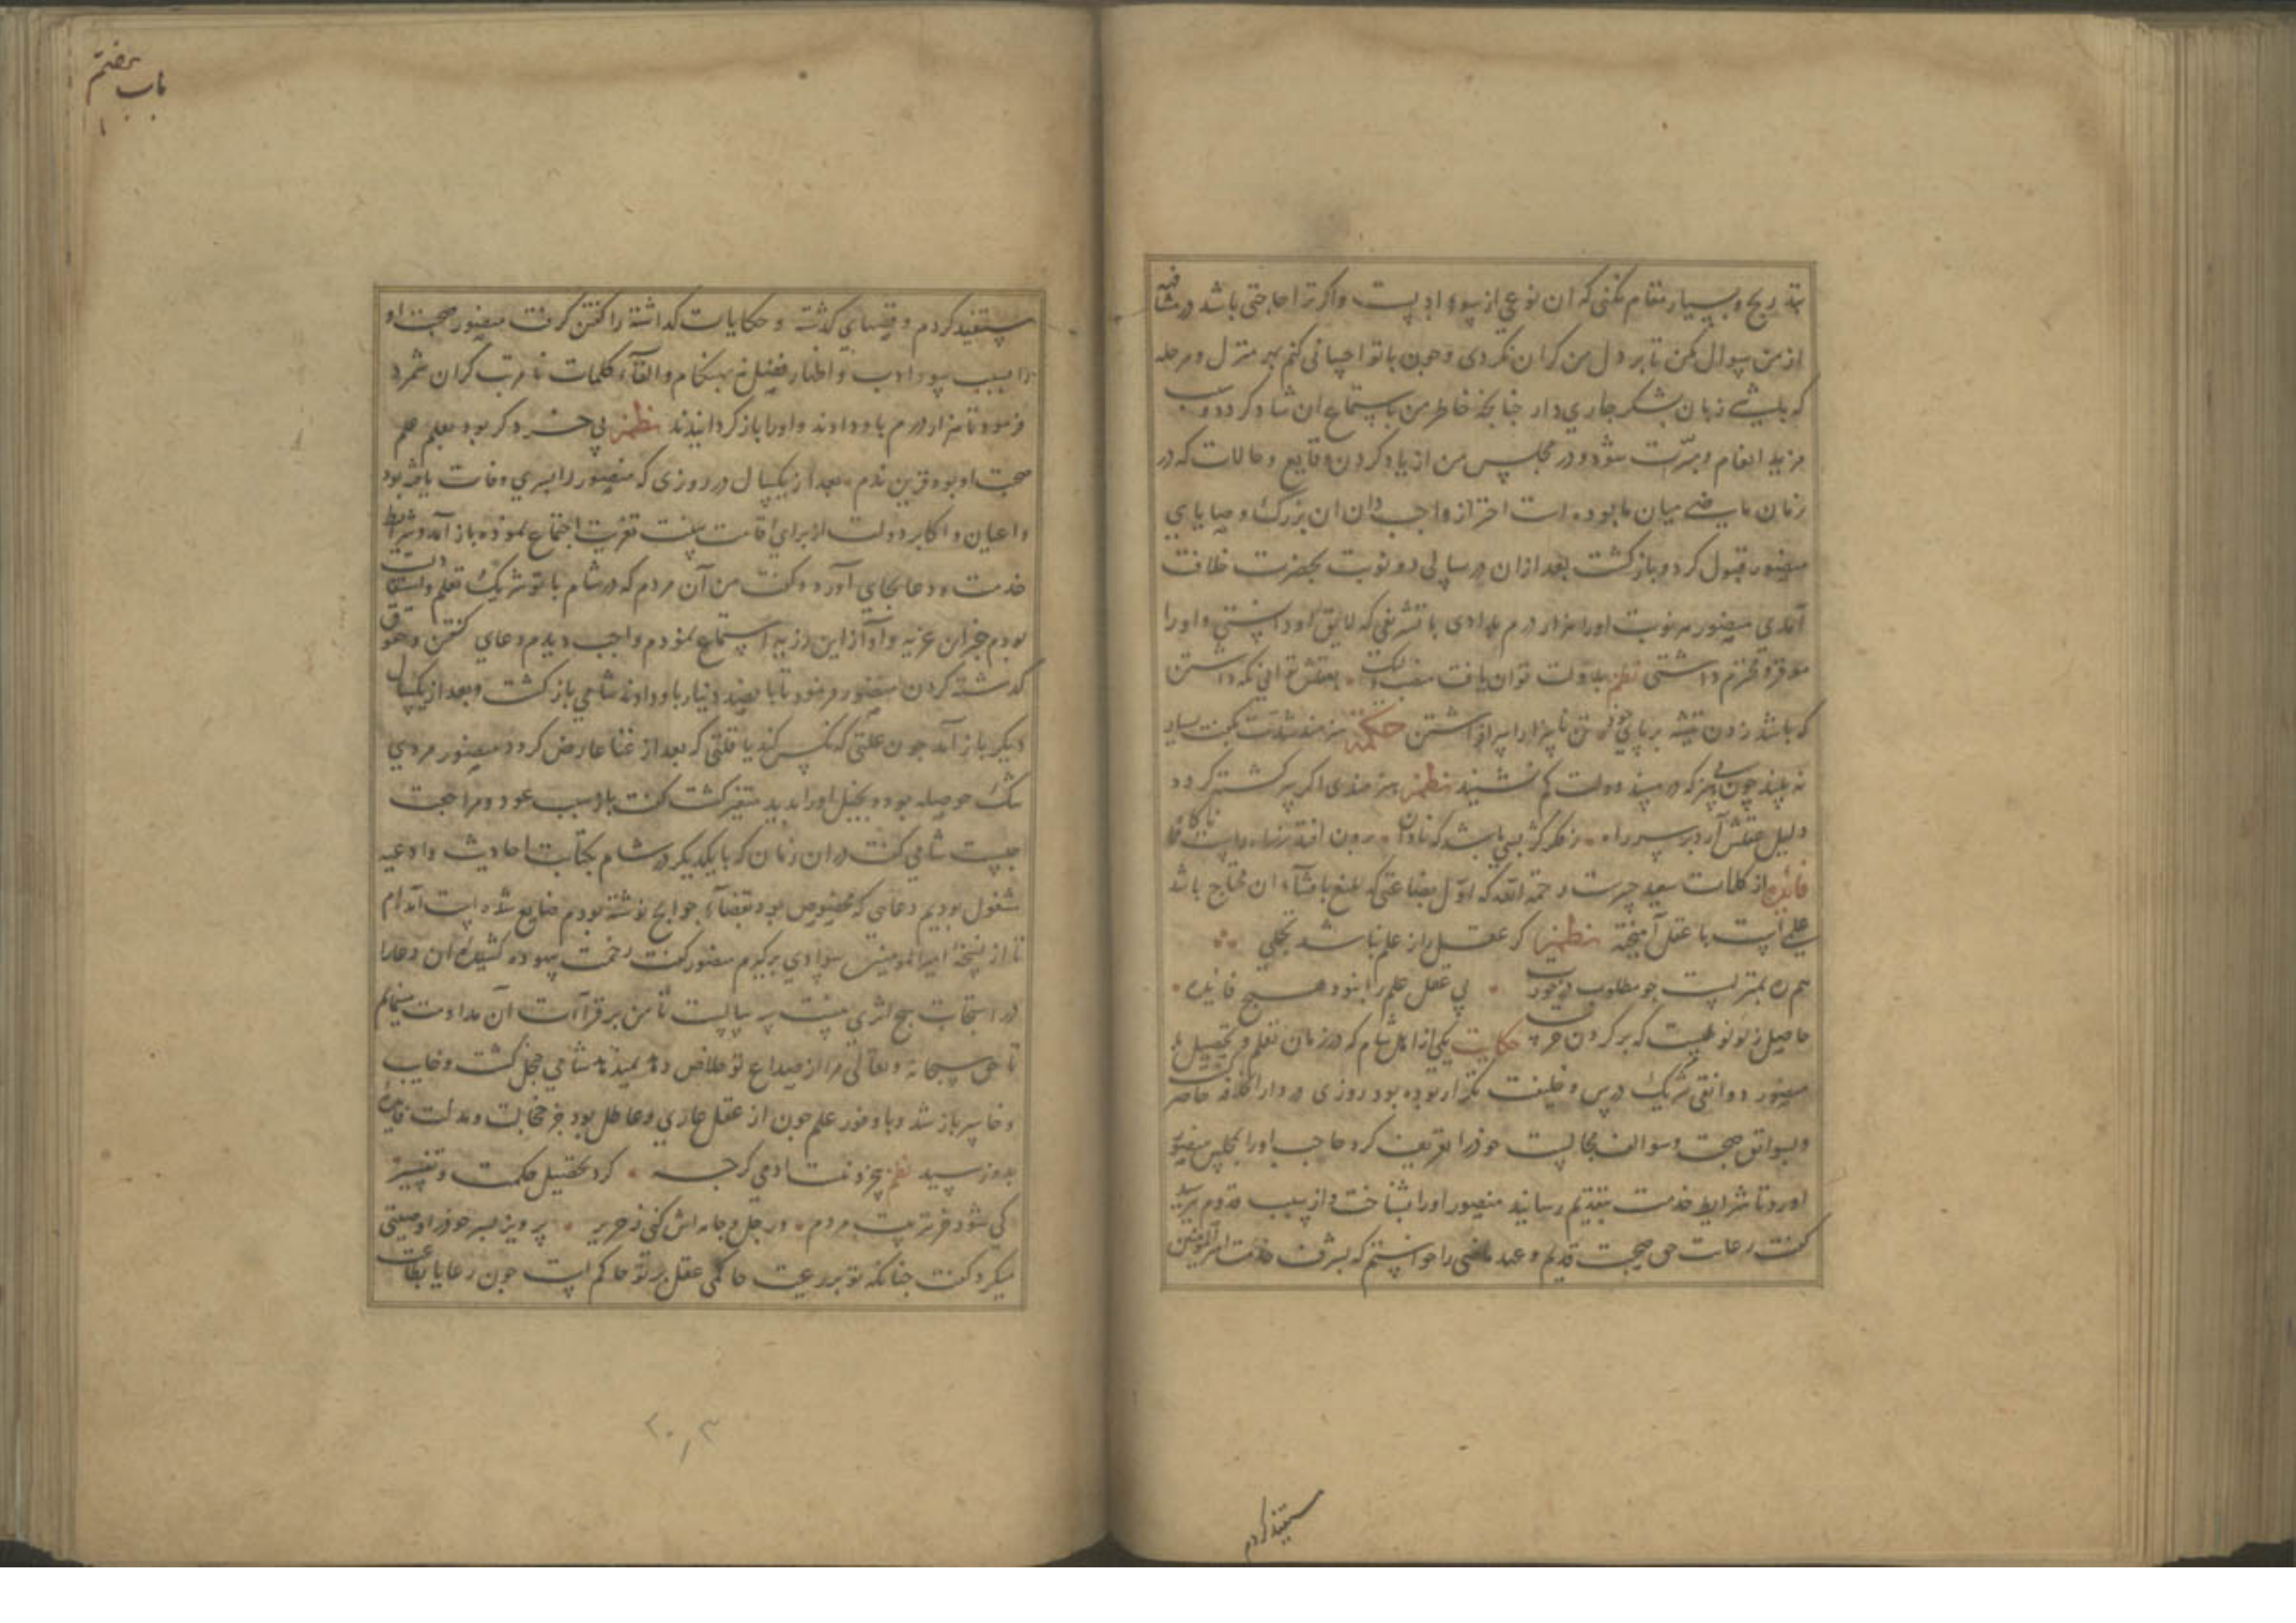 بتدریج و بسیار مقام نکنی که آن نوعی از سوء ادبست و اگر ترا حاجتی باشد در مشافهه
از من سوال مکن تا بر دل من گران نگردی و چون با تو احسانی کنم بهر منزل و مرحله
که باشی زبان بشکر جاری دار چنانچه خاطر من باستماع آن شاد گردد و سبب
مزید انعام و مبرّت شود و در مجلس من از یاد کردن وقایع و حالات که در
زمان ماضی میان ما بوده است احتراز واجب دان آن بزرگ وصایای
منصور قبول کرد و بازگشت بعد ازان در سالی دو نوبت بحضرت خلافت
آمدی منصور هر نوبت او را هزار درم بدادی با تشریفی که لایق او دانستی و او را
موقر و محترم داشتی نظم بدولت توان یافت بعقلش توانی نکه داشتن
که باشد زدن تیشه بر پای خود تن ناسزا را سرافراشتن حکمة هنرمند شدت نکبت بسیار
نه بیند چون بی هنر که در مسند دولت کم نشیند نظم هنرمندی اگر سرگشته گردد
دلیل عقلش آرد بر سر راه ز فکر کژ بسی باشد که نادان برون افتد ز راه راست ناگاه
فایده از کلمات سعید رحمة الله که اول بضاعتی که بلیغ بامشاء آن محتاج باشد
علمی است با عقل آمیخته نظم گر عقل از علم باشد تجلی
همره بمنزلست چو مطلوب در خورست بی عقل علم را نبود هیچ فایده
حاصل ز لولو چیست که بر گردن خرست حکایت یکی از اهل شام که در زمان تعلم و تحصیل با
منصور دوانقی شریک درس و خلیفت تکرار بوده بود روزی در دار الخلافه حاضر گشت
و بسوابق صحبت و سوالف مجالست خود را تعریف کرد حاجب او را بمجلس منصور
آورد تا شرایط خدمت بتقدیم رسانید منصور او را بشناخت و از سبب قدوم پرسید
گفت رعایت حق صحبت قدیم و عهد ماضی را خواستم که بشرف خدمت امیر المؤمنین
مستفید کردم
باب هفتم
مستفید کردم و قصهای گذشته و حکایات گذاشته را گفتن گرفت منصور صحبت او
را بسبب سوء ادب و اظهار فضل نه بهنگام و القاء کلمات نامرتب گران شمرد
فرمود تا هزار درم باو دادند و او را باز گردانیدند نظم بی خرد گر بود معلم علم
صحبت او بود قرین ندم بعد از یکسال در روزی که منصور را پسری وفات یافته بود
و اعیان و اکابر دولت از برای اقامت سنت تعزیت اجتماع نموده باز آمد و شرایط
خدمت و دعا بجای آورد و گفت من آن مردم که در شام با تو شریک تعلم و استفادت
بودم خبر آن عزیه و آواز این رزیه استماع نمودم واجب دیدم دعای گفتن و حقوق
گذشته گزاردن منصور فرمود تا پانصد دینار باو دادند شامی بازگشت و بعد از یکسال
دیگر باز آمد چون علتی که نکس کند یا قلتی که بعد از غنا عارض گردد منصور مردی
تنگ حوصله بود و بخیل او را بدید متغیر گشت گفت باز سبب عود و مراجعت
چیست شامی گفت در آن زمان که با یکدیگر در شام بکتابت احادیث و ادعیه
مشغول بودیم دعایی که مخصوص بود بقضاء حوایج نوشته بودم ضایع شده است آمدم
تا از نسخه امیر المؤمنین سوادی برگیرم منصور گفت زحمت بیهوده کشیده آن دعا را
در استجابت هیچ اثری نیست سه سالست تا من بر قراءت آن مداومت مینمایم
تا حق سبحانه و تعالی مرا از صداع تو خلاص دهد نمیدهد شامی خجل گشت و خایب
و خاسر باز شد و با وفور علم چون از عقل عاری و عاطل بود جز خجالت و مذلت فایده
بدو نرسید نظم هرچه کرد تحصیل حکمت و تفسیر
کی شود مردم ور خز و جامه اش کنی ز حریر پرویز پسر خود را وصیتی
میکرد گفت چنانکه تو بر رعیت حاکمی عقل بر تو حاکم است چون رعایا بطاعت
۲۰۳